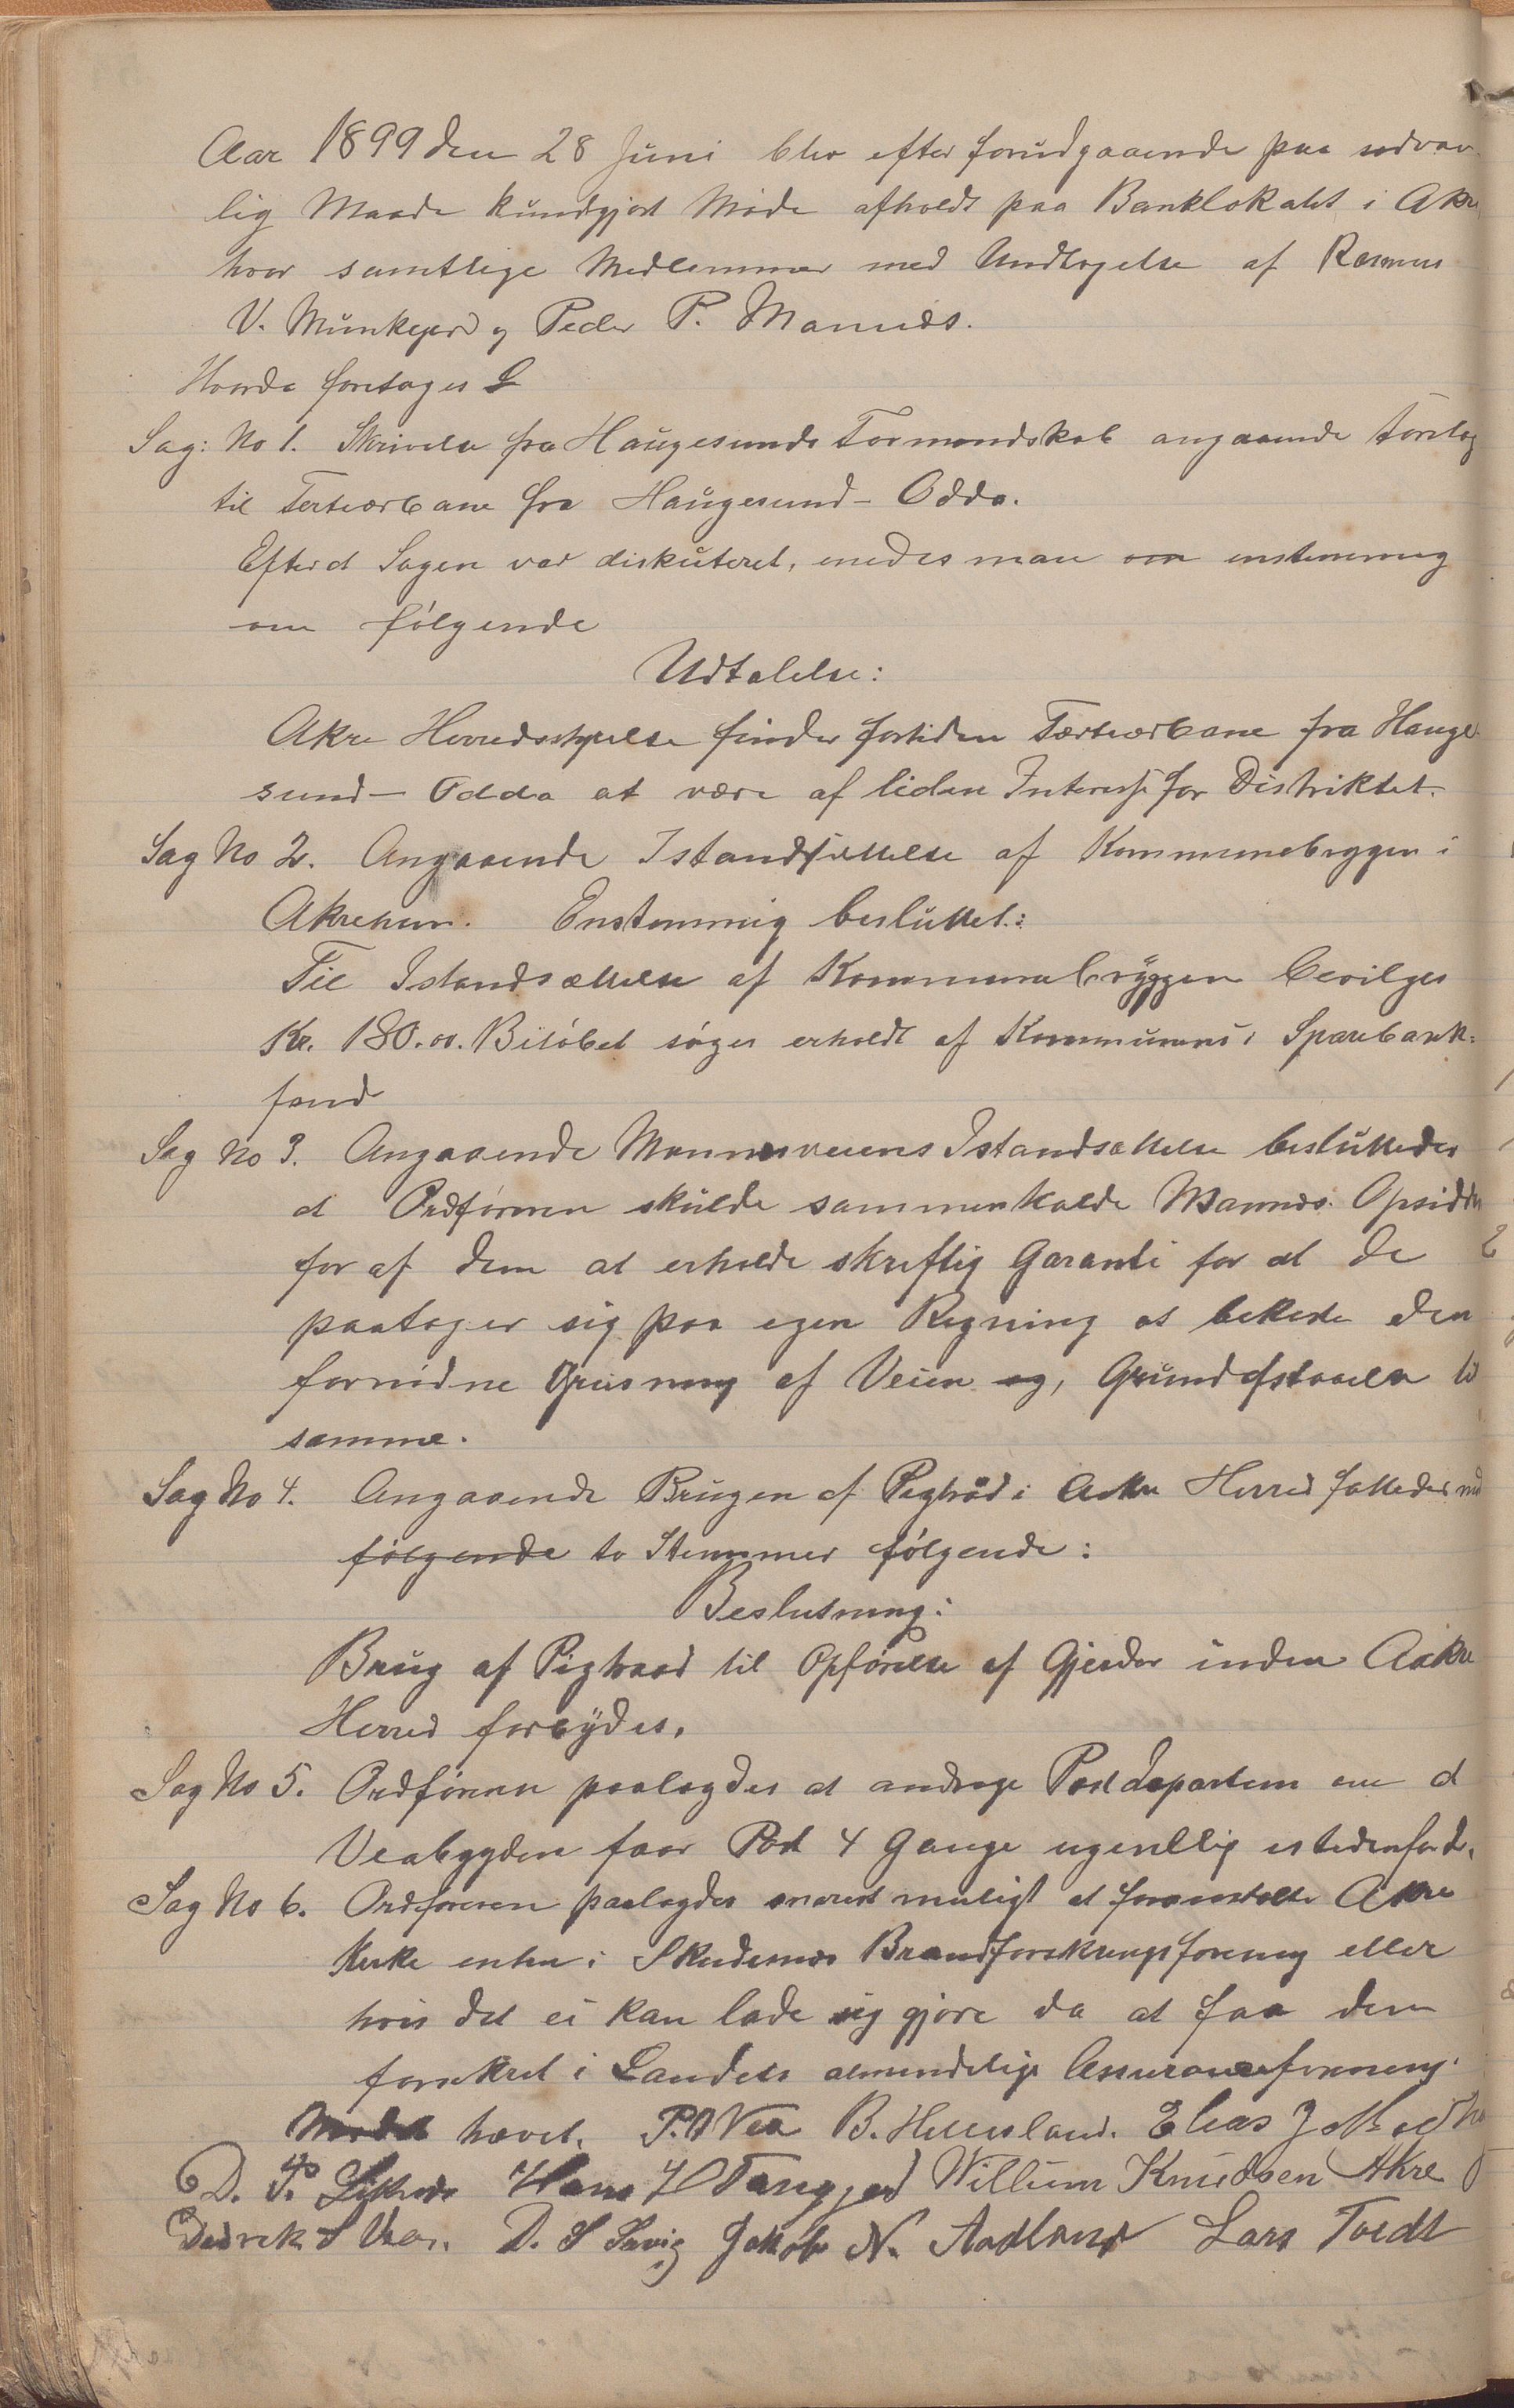 Aar 1899 den 28 Juni blev efter forudgaaende paa sedvan-
lig Maade kundgjort Møde afholdt paa Banklokalet i Akre
hvor samtlige Medlemmer med Undtagelse af Rasmus
V. Munkejord og Peder P. Mannes.
Hvorda foretoges
Sag: No 1. Skrivelse fra Haugesunds Formandskab angaaende Forslag
til Tertiærbane fra Haugesund - Odda.
Efterat Sagen var diskuteret, enedes man om enstemmig
om følgende
Udtalelse:
Akre Herredsstyrelse finder fortiden Tertiærbane fra Hauge-
sund - Odda at være af liden Interesse for Distriktet.
Sag No 2. Angaaende Istandsættelse af Kommunebryggen i
Akrehavn. Enstemmig besluttet:
Til Istandsættelse af Kommunebryggen bevilges
Kr. 180.00. Beløbet søges erholdt af Kommunens Sparebank-
fond
Sag No 3. Angaaende Mannesveiens Istandsættelse besluttedes
at Ordføreren skulde sammenkalde Mannes Opsiddere
for af dem at erholde skriftlig Garanti for at de
paatager sig paa egen Regning at bekoste den
fornødne Grusning af Veien og, Grundafstaaelse til
samme.
Sag No 4. Angaaende Brugen af Pigtråd i Aakre Herred fattedes mod
følgende to Stemmer følgende:
Beslutning:
Brug af Pigtraad til Opførelse af Gjerder inden Aakre
Herred forbydes.
Sag No 5. Ordføreren paalagdes at andrage Postdepartem om at
Veabygden faar Post 4 Gange ugentlig istedenfor 2.
Sag No 6. Ordføreren paalagdes snarest muligt at foranstalte Akre
Kirke enten i Skudenes Brandforsikringsforening eller
hvis det ei kan lade sig gjøre da at faa den
forsikret i Landets almindelige Assuranceforening.
Mødet hævet. P. D Vea B. Hillesland. Elias J
D. P. Hans H Tangjerd Willium Knudsen Akre
Didrik S Vea. D. S Sævig Jakob N. Aadland Lars Tvedt